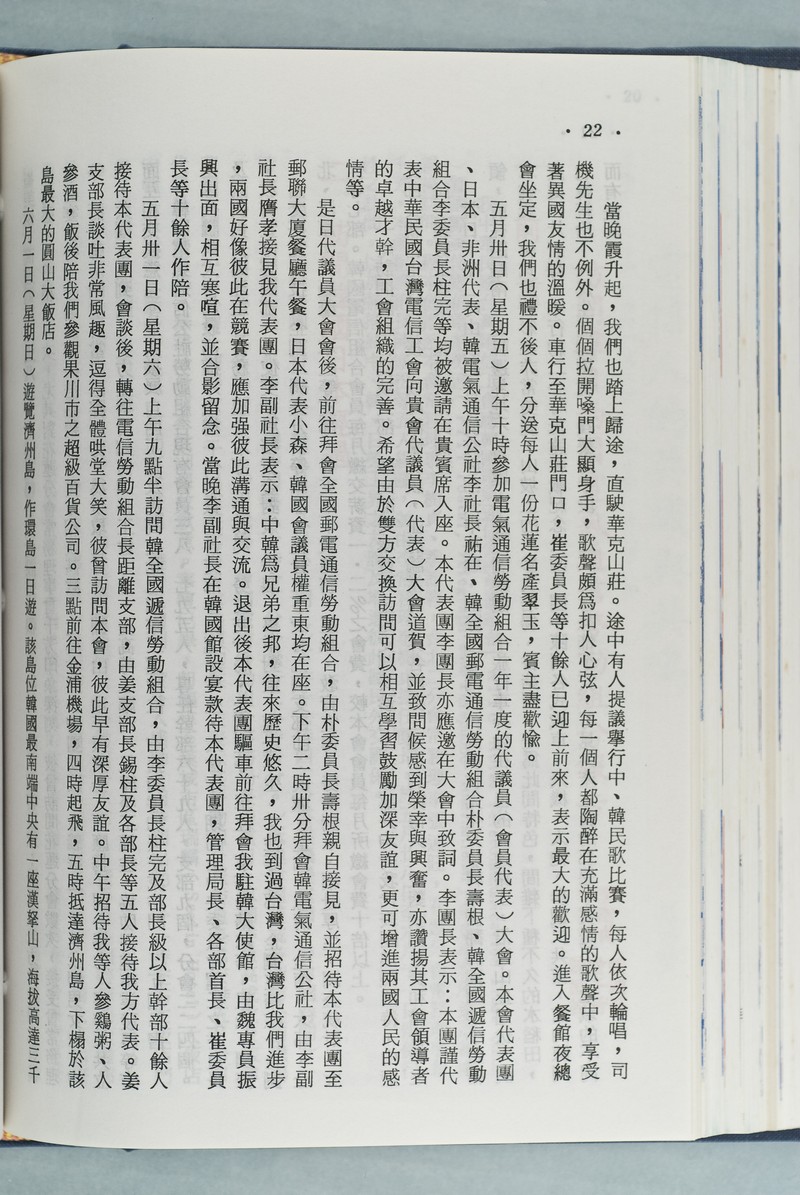 • 22 •
當晚霞升起，我們也踏上歸途，直駛華克山莊。途中有人提議舉行中、韓民歌比賽，每人依次輪唱，司
機先生也不例外。個個拉開嗓門大顯身手，歌聲頗爲扣人心弦，每一個人都陶醉在充滿感情的歌聲中，享受
著異國友情的溫暖。車行至華克山莊門口，崔委員長等十餘人已迎上前來，表示最大的歡迎。進入餐館夜總
會坐定，我們也禮不後人，分送每人一份花蓮名產翠玉，賓主盡歡愉。
五月卅日（星期五）上午十時參加電氣通信勞動組合一年一度的代議員（會員代表）大會。本會代表團
、日本、非洲代表、韓電氣通信公社李社長祐在、韓全國郵電通信勞動組合朴委員長壽根、韓全國遞信勞動
組合李委員長柱完等均被邀請在貴賓席入座。本代表團李團長亦應邀在大會中致詞。李團長表示：本團謹代
表中華民國台灣電信工會向貴會代議員（代表）大會道賀，並致問候感到榮幸與興奮，亦讚揚其工會領導者
的卓越才幹，工會組織的完善。希望由於雙方交換訪問可以相互學習鼓勵加深友誼，更可增進兩國人民的感
情等。
是日代議員大會會後，前往拜會全國郵電通信勞動組合，由朴委員長壽根親自接見，並招待本代表團至
郵聯大廈餐廳午餐，日本代表小森、韓國會議員權重東均在座。下午二時卅分拜會韓電氣通信公社，由李副
社長膺孝接見我代表團。李副社長表示：中韓爲兄弟之邦，往來歷史悠久，我也到過台灣，台灣比我們進步
，兩國好像彼此在競賽，應加强彼此溝通與交流。退出後本代表團驅車前往拜會我駐韓大使館，由魏專員振
興出面，相互寒喧，並合影留念。當晚李副社長在韓國館設宴款待本代表團，管理局長、各部首長、崔委員
長等十餘人作陪。
五月卅一日（星期六）上午九點半訪問韓全國遞信勞動組合，由李委員長柱完及部長級以上幹部十餘人
接待本代表團，會談後，轉往電信勞動組合長距離支部，由姜支部長錫柱及各部長等五人接待我方代表。姜
支部長談吐非常風趣，逗得全體哄堂大笑，彼曾訪問本會，彼此早有深厚友誼。中午招待我等人參鷄粥、人
參酒，飯後陪我們參觀果川市之超級百貨公司。三點前往金浦機場，四時起飛，五時抵達濟州島，下榻於該
島最大的圓山大飯店。
六月一日（星期日）遊覽濟州島，作環島一日遊。該島位韓國最南端中央有一座漢拏山，海拔高達三千